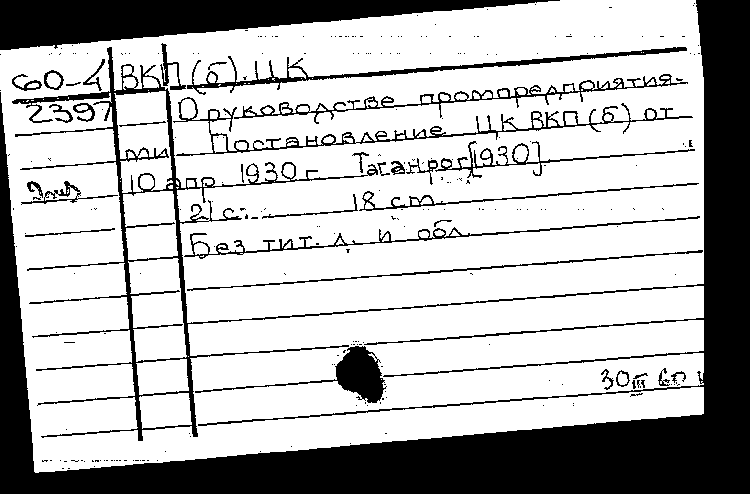 60-4 ВКП(б). ЦК
2397 О руководстве промпредприятия-
ми. Постановление ЦК ВКП(б) от
10 апр. 1930 г. Таганрог, [1930].
21 с. 18 cm.
Без тит. л. и обл.
30 III 60